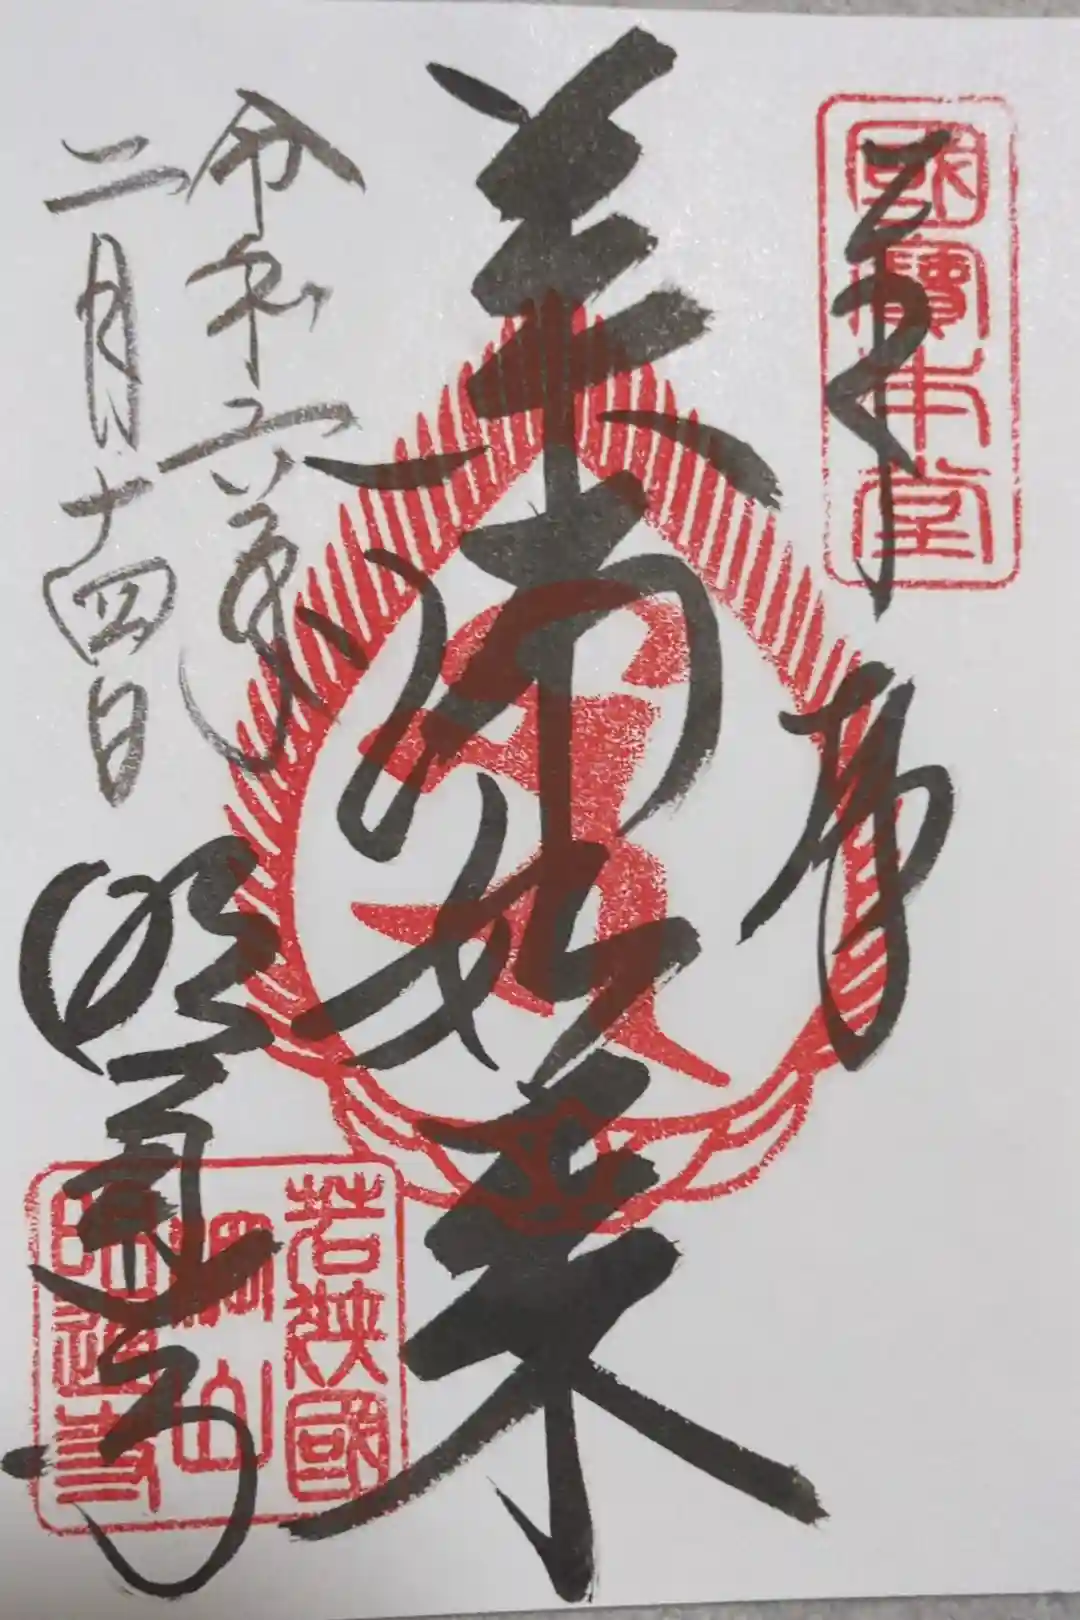 國寶本堂
奉拝
薬師如来
令和六年
二月十四日
明通寺
若狭國
棡山
明通寺